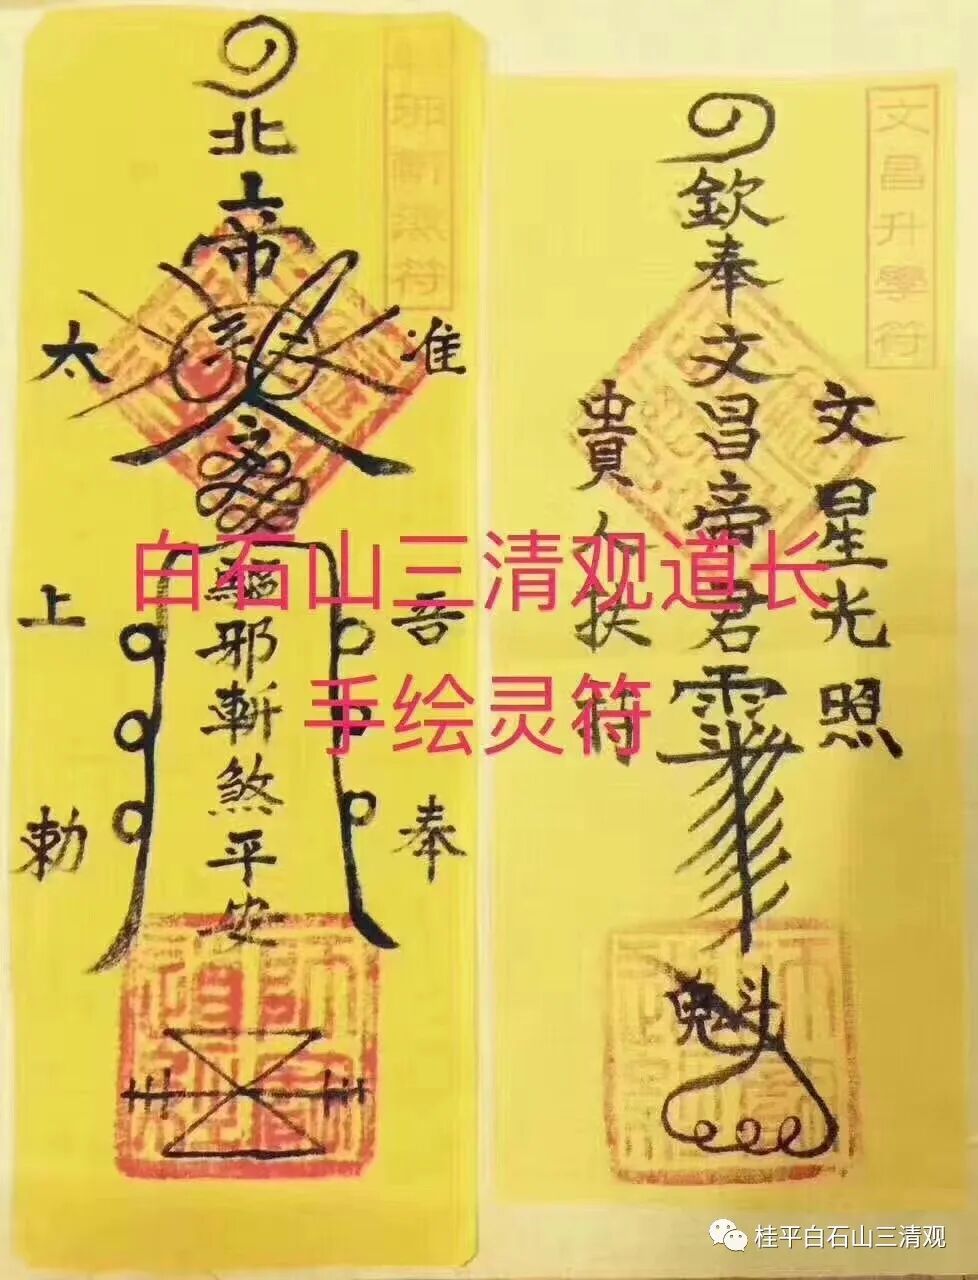 北
帝
太
准
上
吾
勅
奉
驅邪斬煞平安
邪斬煞符
欽奉文昌帝君
文星光照
貴人扶
魁
文昌升學符
白石山三清观道长
手绘灵符
桂平白石山三清观